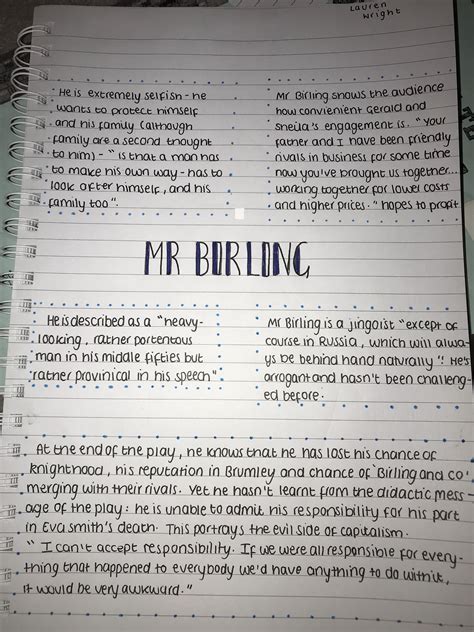 Lauren
Wright
He is extremely selfish - he
wants to protect himself
and his family (although
family are a second thought
to him) - "is that a man has
to make his own way - has to
look after himself, and his
family too".
Mr Birling shows the audience
how convienient Gerald and
Sheila's engagement is. "Your
father and I have been friendly
rivals in business for some time
now you've brought us together...
working together for lower costs
and higher prices." hopes to profit
MR BIRLING
He is described as a "heavy-
looking, rather portentous
man in his middle fifties but
rather provinical in his speech"
Mr Birling is a jingoist "except of
course in Russia, which will alwa-
ys be behind hand naturally"! He's
arrogant and hasn't been challeng-
ed before.
At the end of the play, he knows that he has lost his chance of
knighthood, his reputation in Brumley and chance of 'Birling and co'
merging with their rivals. Yet he hasn't learnt from the didactic mess-
age of the play: he is unable to admit his responsibility for his part
in Eva Smith's death. This portrays the evil side of capitalism.
"I can't accept responsibility. If we were all responsible for every-
thing that happened to everybody we'd have anything to do with it,
it would be very awkward."